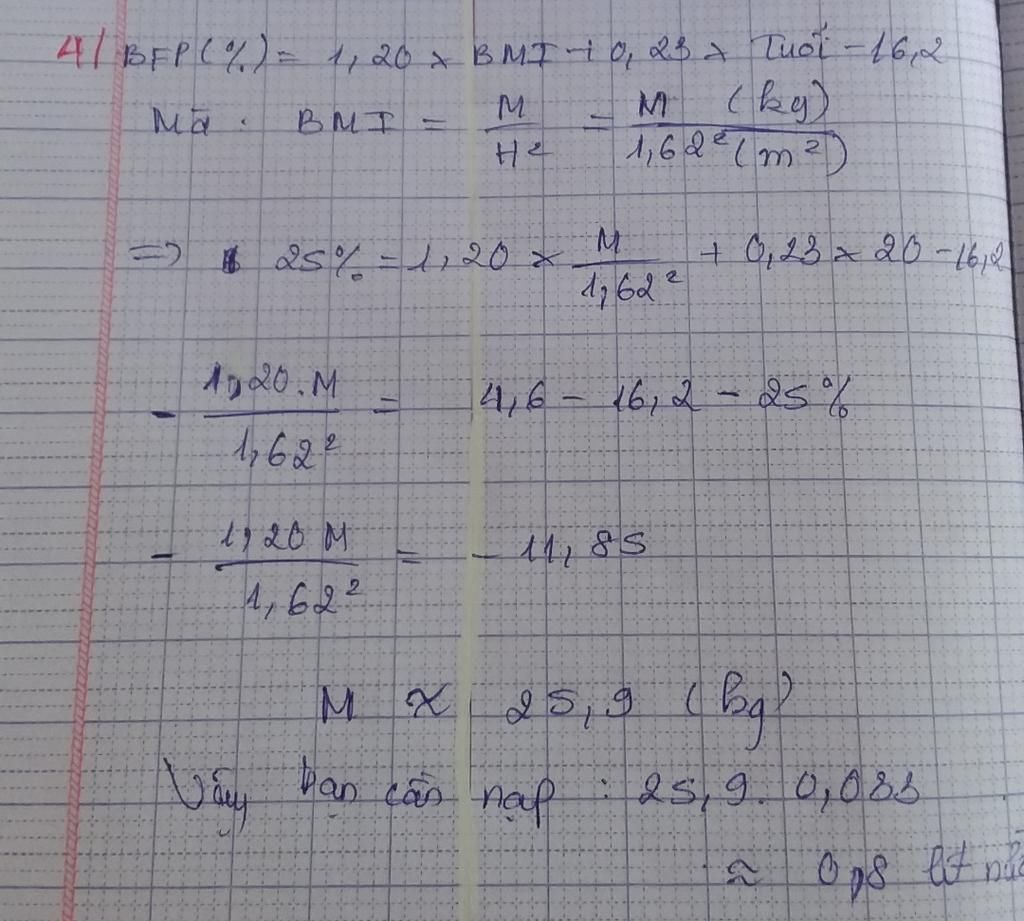 4/ BFP(%) = 1,20 x BMI + 0,23 x Tuổi - 16,2
Mà . BMI = M/H² = M (kg)/1,62² (m²)
=> 25% = 1,20 x M/1,62² + 0,23 x 20 - 16,2
- 1,20.M/1,62² = 4,6 - 16,2 - 25%
- 1,20 M/1,62² = - 11,85
M ≈ 25,9 (kg)
Vậy bạn cần nạp : 25,9 . 0,033
≈ 0,8 lít